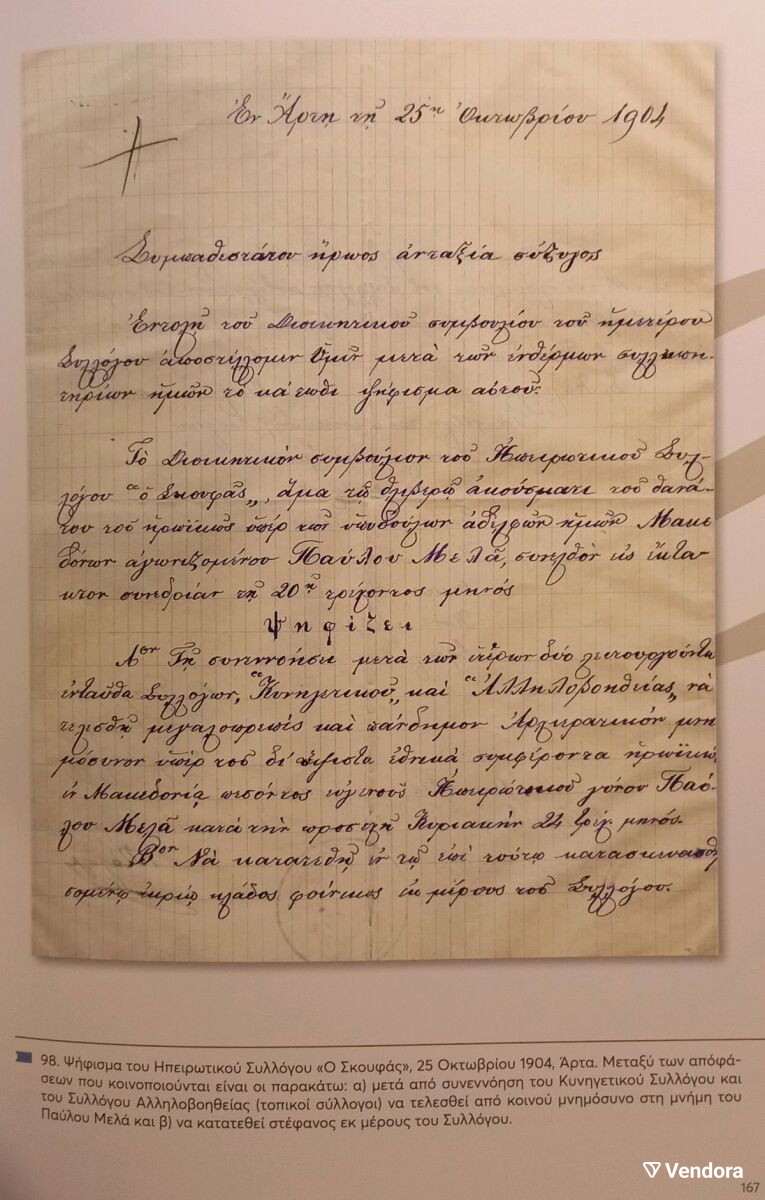 Ἐν Ἄρτῃ τῇ 25ῃ Ὀκτωβρίου 1904
Συμπαθεστάτου ἥρωος ἀνταξία σύζυγος
Ἐντολῇ τοῦ Διοικητικοῦ συμβουλίου τοῦ ἡμετέρου
Συλλόγου ἀποστέλλομεν Ὑμῖν μετὰ τῶν ἐνθέρμων συλλυπη-
τηρίων ἡμῶν τὸ κάτωθι ψήφισμα αὐτοῦ:
Τὸ Διοικητικὸν συμβούλιον τοῦ Ἠπειρωτικοῦ Συλ-
λόγου "ὁ Σκουφᾶς", ἅμα τῷ θλιβερῷ ἀκούσματι τοῦ θανά-
του τοῦ ἡρωϊκῶς ὑπὲρ τῶν ὑποδούλων ἀδελφῶν ἡμῶν Μακε
δόνων ἀγωνιζομένου Παύλου Μελᾶ, συνελθὸν εἰς ἔκτα
κτον συνεδρίαν τῇ 20ῇ τρέχοντος μηνός
Ψηφίζει
Αον Τῇ συνεννοήσει μετὰ τῶν ἑτέρων δύο λειτουργούντων
ἐνταῦθα Συλλόγων, "Κυνηγετικοῦ" καὶ "Ἀλληλοβοηθείας" νὰ
τελεσθῇ μεγαλοπρεπὲς καὶ πάνδημον Ἀρχιερατικὸν μνη
μόσυνον ὑπὲρ τοῦ δι' ὕψιστα ἐθνικὰ συμφέροντα ἡρωϊκῶς
ἐν Μακεδονίᾳ πεσόντος εὐγενοῦς Ἠπειρωτικοῦ γόνου Παύ-
λου Μελᾶ κατὰ τὴν προσεχῆ Κυριακὴν 24 τρέχ. μηνός.
Βον Νὰ κατατεθῇ ἐν τῷ ἐπὶ τούτῳ κατασκευασθη
σομένῳ ἰκρίῳ κλάδος φοίνικος ἐκ μέρους τοῦ Συλλόγου.
98. Ψήφισμα του Ηπειρωτικού Συλλόγου «Ο Σκουφάς», 25 Οκτωβρίου 1904, Άρτα. Μεταξύ των αποφά-
σεων που κοινοποιούνται είναι οι παρακάτω: α) μετά από συνεννόηση του Κυνηγετικού Συλλόγου και
του Συλλόγου Αλληλοβοηθείας (τοπικοί σύλλογοι) να τελεσθεί από κοινού μνημόσυνο στη μνήμη του
Παύλου Μελά και β) να κατατεθεί στέφανος εκ μέρους του Συλλόγου.
Vendora
167